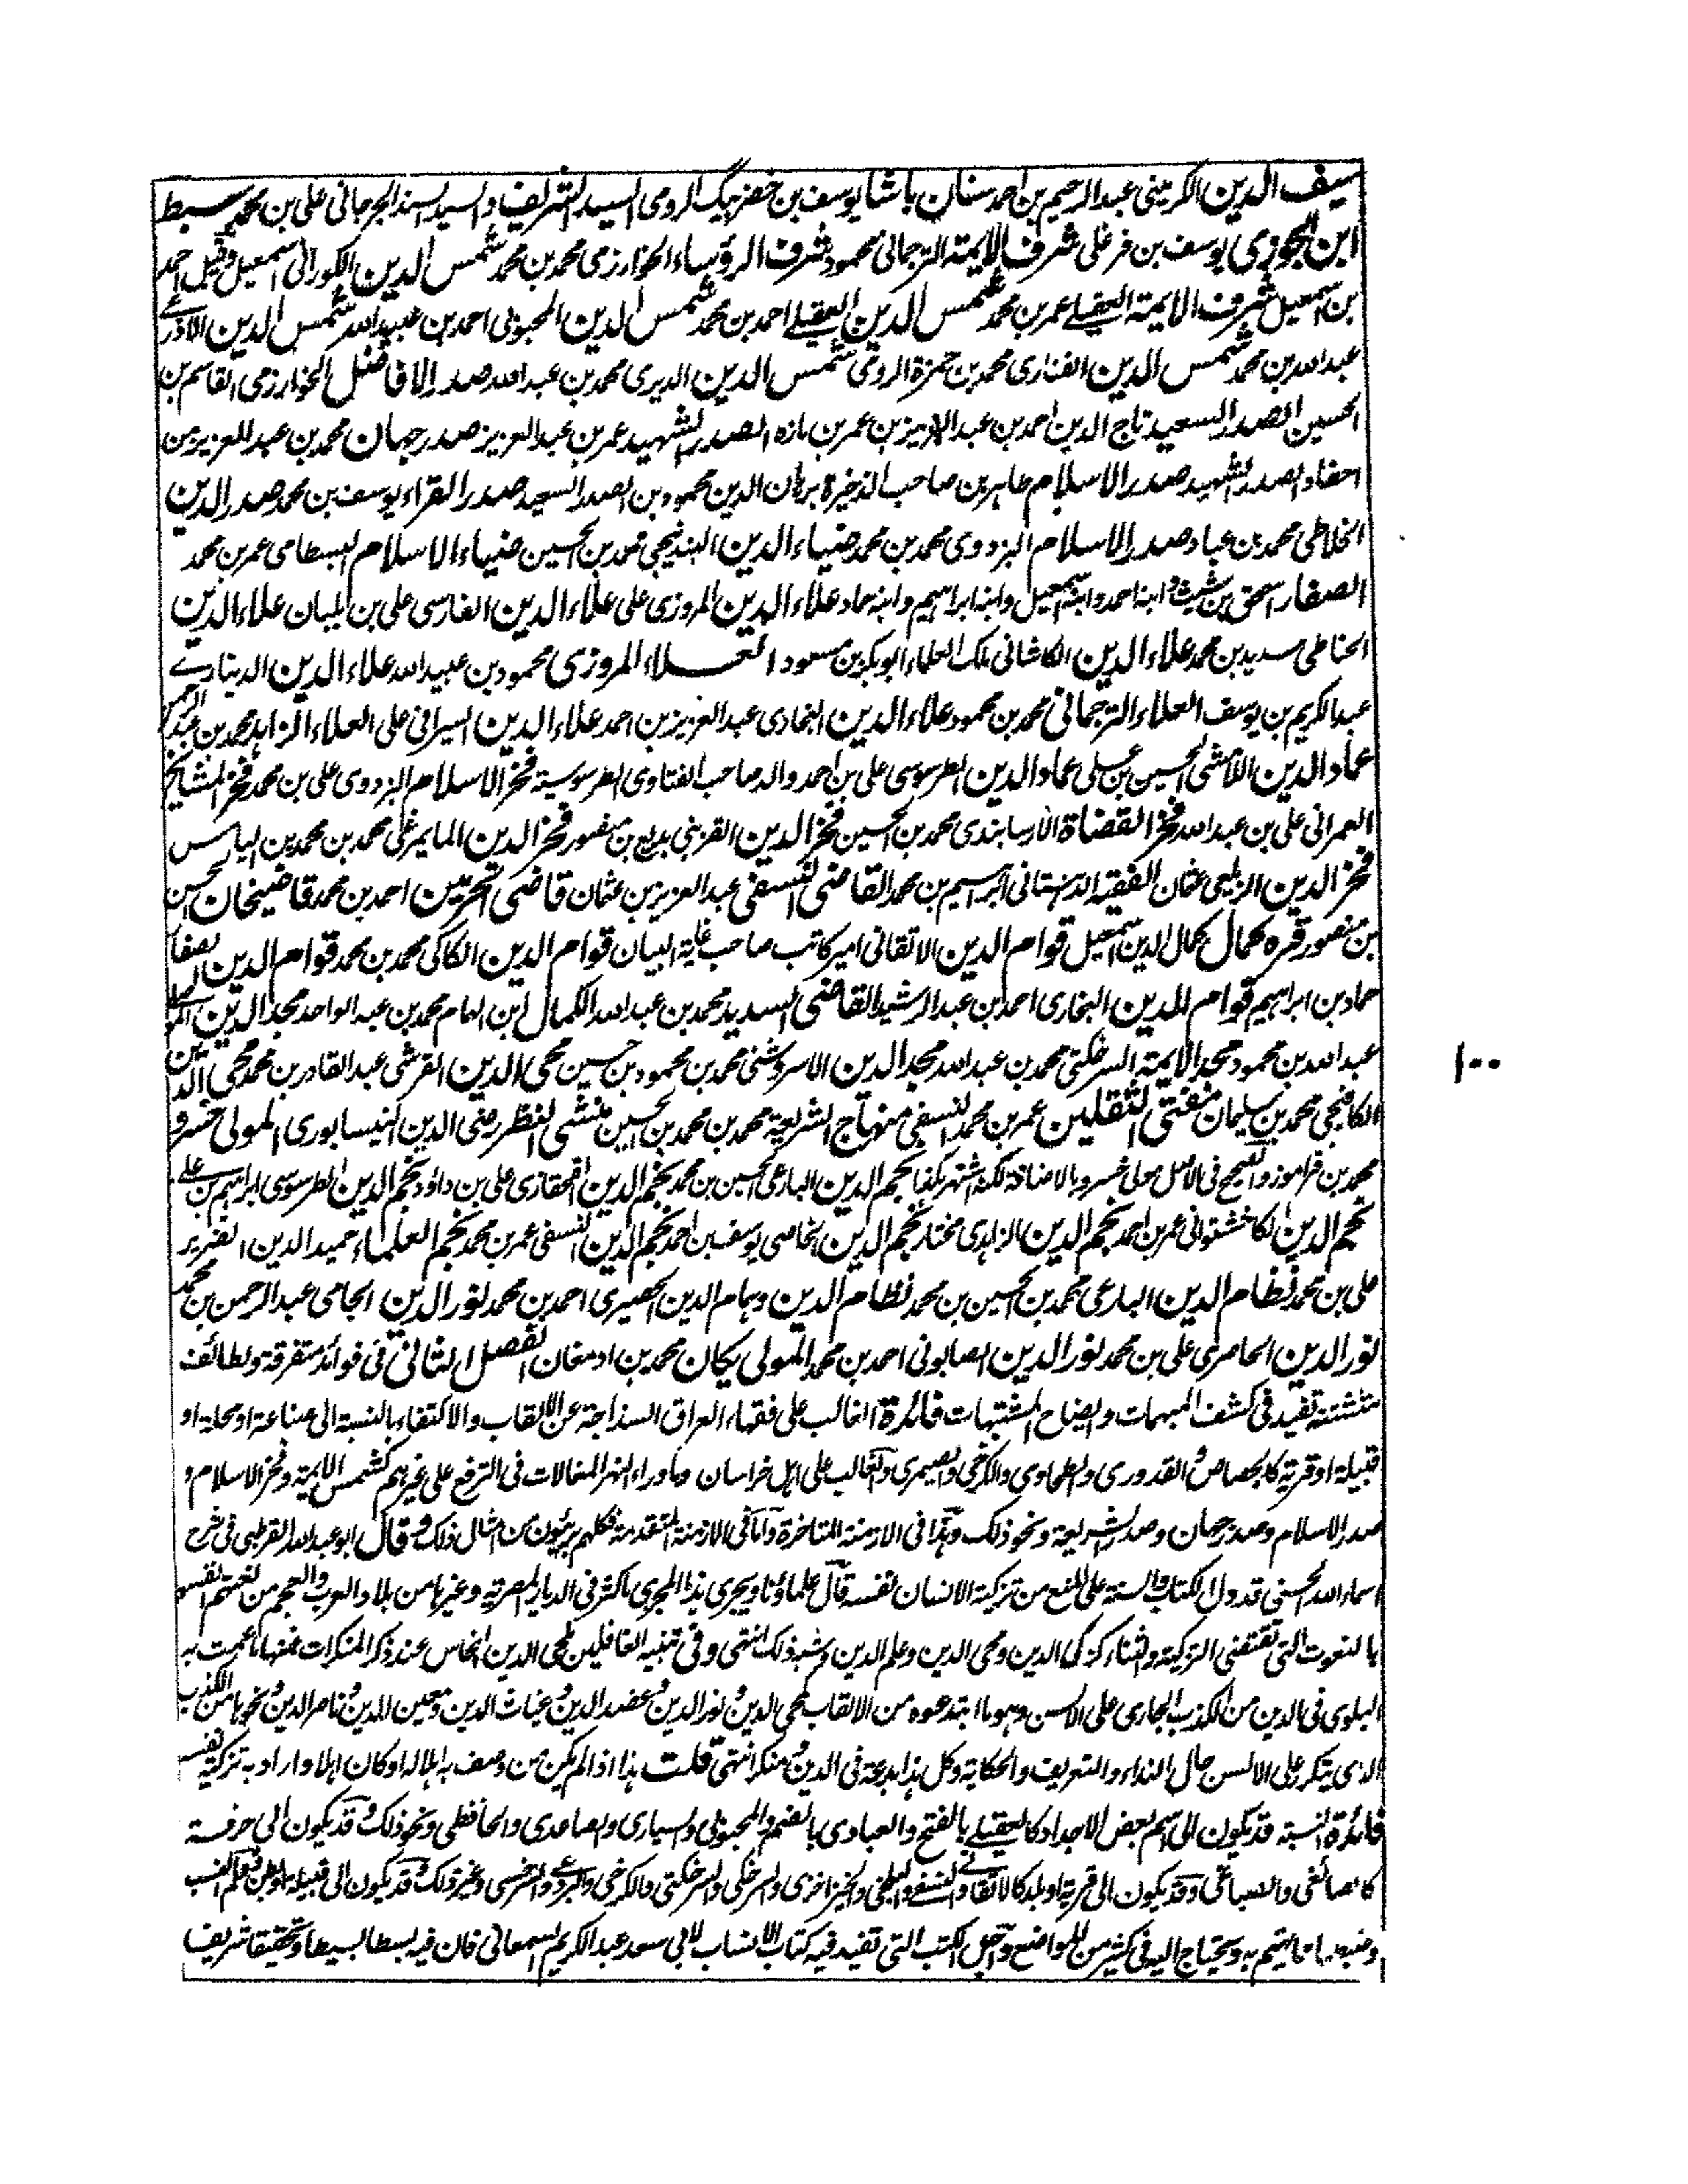 سيف الدين الكرمينى عبد الرحيم بن احمد سنان باشا يوسف بن خضر بيگ الرومى السيد الشريف والسيد السند الجرجانى على بن محمد سبط
ابن الجوزى يوسف بن فرغلى شرف الايمة الترجمانى محمود شرف الرؤساء الخوارزمى محمد بن محمد شمس الدين الكورانى اسمعيل وقيل احمد
بن اسمعيل شرف الايمة العقيلے عمر بن محمد شمس الدين العقيلے احمد بن محمد شمس الدين المحبوبى احمد بن عبيد الله شمس الدين الاذرعے
عبد الله بن محمد شمس الدين الفنارى محمد بن حمزة الرومى شمس الدين الديرى محمد بن عبد الله صدر الافاضل الخوارزمى القاسم بن
الحسين الصدر السعيد تاج الدين احمد بن عبد العزيز بن عمر بن مازه الصدر الشهيد عمر بن عبد العزيز صدر جهان محمد بن عبد العزيز من
احفاد الصدر الشهيد صدر الاسلام طاهر بن صاحب الذخيرة برهان الدين محمود بن الصدر السعيد صدر القراء يوسف بن محمد صدر الدين
الخلاطى محمد بن عباد صدر الاسلام البزدوى محمد بن محمد ضياء الدين البندنيجى محمد بن الحسين ضياء الاسلام البسطامى عمر بن محمد
الصفار اسحق بن شيث وابنه احمد وابنه اسمعيل وابنه ابراهيم وابنه حماد علاء الدين المروزى على علاء الدين الفارسى على بن بلبان علاء الدين
الحناطى سديد بن محمد علاء الدين الكاشانى ملك العلماء ابو بكر بن مسعود العلاء المروزى محمود بن عبيد الله علاء الدين الدينارے
عبد الكريم بن يوسف العلاء الترجمانى محمد بن محمود علاء الدين البخارى عبد العزيز بن احمد علاء الدين السيرافى على العلاء الزاهد محمد بن عبد الرحمن
عماد الدين اللامشى الحسين بن على عماد الدين الطرسوسى على بن احمد والد صاحب الفتاوى الطرسوسية فخر الاسلام البزدوى على بن محمد فخر المشايخ
العمرانى على بن عبد الله فخر القضاة الارسابندى محمد بن الحسين فخر الدين القزبنى بديع بن منصور فخر الدين المايمرغى محمد بن محمد بن الياس
فخر الدين الزيلعى عثمان الفقيه الدهستانى ابراهيم بن محمد القاضى النسفى عبد العزيز بن عثمان قاضى الحرمين احمد بن محمد قاضيخان حسن
بن منصور قره كمال كمال الدين اسمعيل قوام الدين الاتقانى امير كاتب صاحب غاية البيان قوام الدين الكاكى محمد بن محمد قوام الدين الصفار
حماد بن ابراهيم قوام الدين البخارى احمد بن عبد الرشيد القاضى السديد محمد بن عبد الله الكمال ابن الهمام محمد بن عبد الواحد مجد الدين الموصلے
عبد الله بن محمود مجد الايمة السرخكتى محمد بن عبد الله مجد الدين الاسروشنى محمد بن محمود بن حسين محى الدين القرشى عبد القادر بن محمد محى الدين
الكافيجى محمد بن سليمان مفتى الثقلين عمر بن محمد النسفى منهاج الشريعة محمد بن محمد بن الحسين منشى النظر رضى الدين النيسابورى المولى خسرو
محمد بن فراموز والصحيح فى الاصل مولى خسرو بالاضافة لكنه اشتهر كذا نجم الدين البارعى الحسين بن محمد نجم الدين القحقازى على بن داؤد نجم الدين الطرسوسى ابراهيم بن على
نجم الدين الكاخشتوانى عمر بن احمد نجم الدين الزاهدى مختار نجم الدين الخاصى يوسف بن احمد نجم الدين النسفى عمر بن محمد نجم العلماء حميد الدين الضرير
على بن محمد نظام الدين البارعى محمد بن الحسين بن محمد نظام الدين وهمام الدين الحصيرى احمد بن محمد نور الدين الجامى عبد الرحمن بن محمد
نور الدين الحامرى على بن محمد نور الدين الصابونى احمد بن محمد المولى يكان محمد بن ادمغان الفصل الثانى فى فوائد متفرقة ولطائف
متشتتة تفيد فى كشف المبهمات وايضاح المشتبهات فائدة الغالب على فقهاء العراق السذاجة عن الالقاب والاكتفاء بالنسبة الى صناعة او محلة او
قبيلة او قرية كالجصاص والقدورى والطحاوى والكرخى والصيمرى والغالب على اهل خراسان وماوراء النهر المغالات فى الترفع على غيرهم كشمس الايمة وفخر الاسلام و
صدر الاسلام وصدر جهان وصدر الشريعة ونحو ذلك وهذا فى الازمنة المتاخرة واما فى الازمنة المتقدمة فكلهم بريئون من امثال ذلك وقال ابو عبد الله القرطبى فى شرح
اسماء الله الحسنى قد دل الكتاب والسنة على المنع من تزكية الانسان نفسه قال علماؤنا ويجرى هذا المجرى ما كثر فى الديار المصرية وغيرها من بلاد العرب والعجم من نعتهم انفسهم
بالنعوت التى تقتضى التزكية والثناء كزكى الدين ومحى الدين وعلم الدين وشبه ذلك انتهى وفى تنبيه الغافلين لمحى الدين النحاس عند ذكر المنكرات فمنها ما عمت به
البلوى فى الدين من الكذب الجارى على الالسن وهو ما ابتدعوه من الالقاب كمحى الدين ونور الدين وعضد الدين وغياث الدين ومعين الدين وناصر الدين ونحوها من الكذب
الذى يتكرر على الالسن حال النداء والتعريف والحكاية وكل هذا بدعة فى الدين ومنكر انتهى قلت هذا اذا لم يكن من وصف به اهلا له او كان اهلا واراد به تزكية نفسه
فائدة النسبة قد يكون الى اسم بعض الاجداد كالعقيلے بالفتح والعبادى بالضم والمحبوبى والسيارى والصاعدى والحافظى ونحو ذلك وقد يكون الى حرفة
كالصائغى والصباغى وقد يكون الى قرية او بلد كالاتقانى والنسفى والبلخى والخيزاخزى والسرخكى والسرخكتى والكرخى والبردعى والسرخسى وغير ذلك وقد يكون الى قبيلة او بطن فعلم النسب
وضبطها مما يهتم به ويحتاج اليه فى كثير من المواضع واجل الكتب التى تفيد فيه كتاب الانساب لابى سعد عبد الكريم السمعانى فان فيه بسطا بسيطا وتحقيقا شريفا
١٠٠